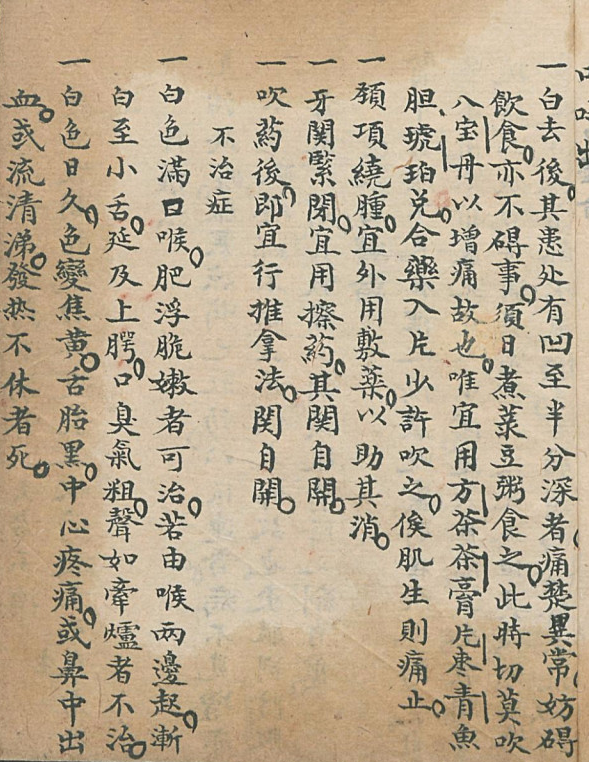 一白去後其患处有凹至半分深者痛楚異常妨碍
飲食亦不碍事須日煮菉豆粥食之此時切莫吹
八宝丹以增痛故也唯宜用方茶茶膏片枣青魚
胆琥珀兑合藥入片少許吹之俟肌生則痛止
一頚項繞腫宜外用敷薬以助其消
一牙関緊閉宜用擦药其関自開
一吹药後即宜行推拿法関自開
不治症
一白色滿口喉肥浮脆嫩者可治若由喉两邊起漸
白至小舌延及上腭口臭氣粗聲如牽爐者不治
一白色日久色變焦黄舌胎黑中心疼痛或鼻中出
血或流清涕發热不休者死